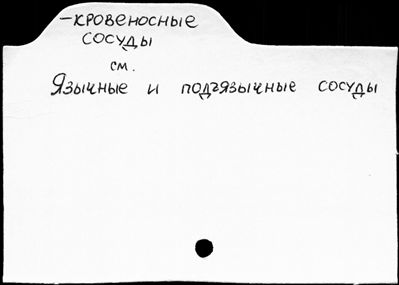 -кровеносные
сосуды
см.
Язычные и подъязычные сосуды